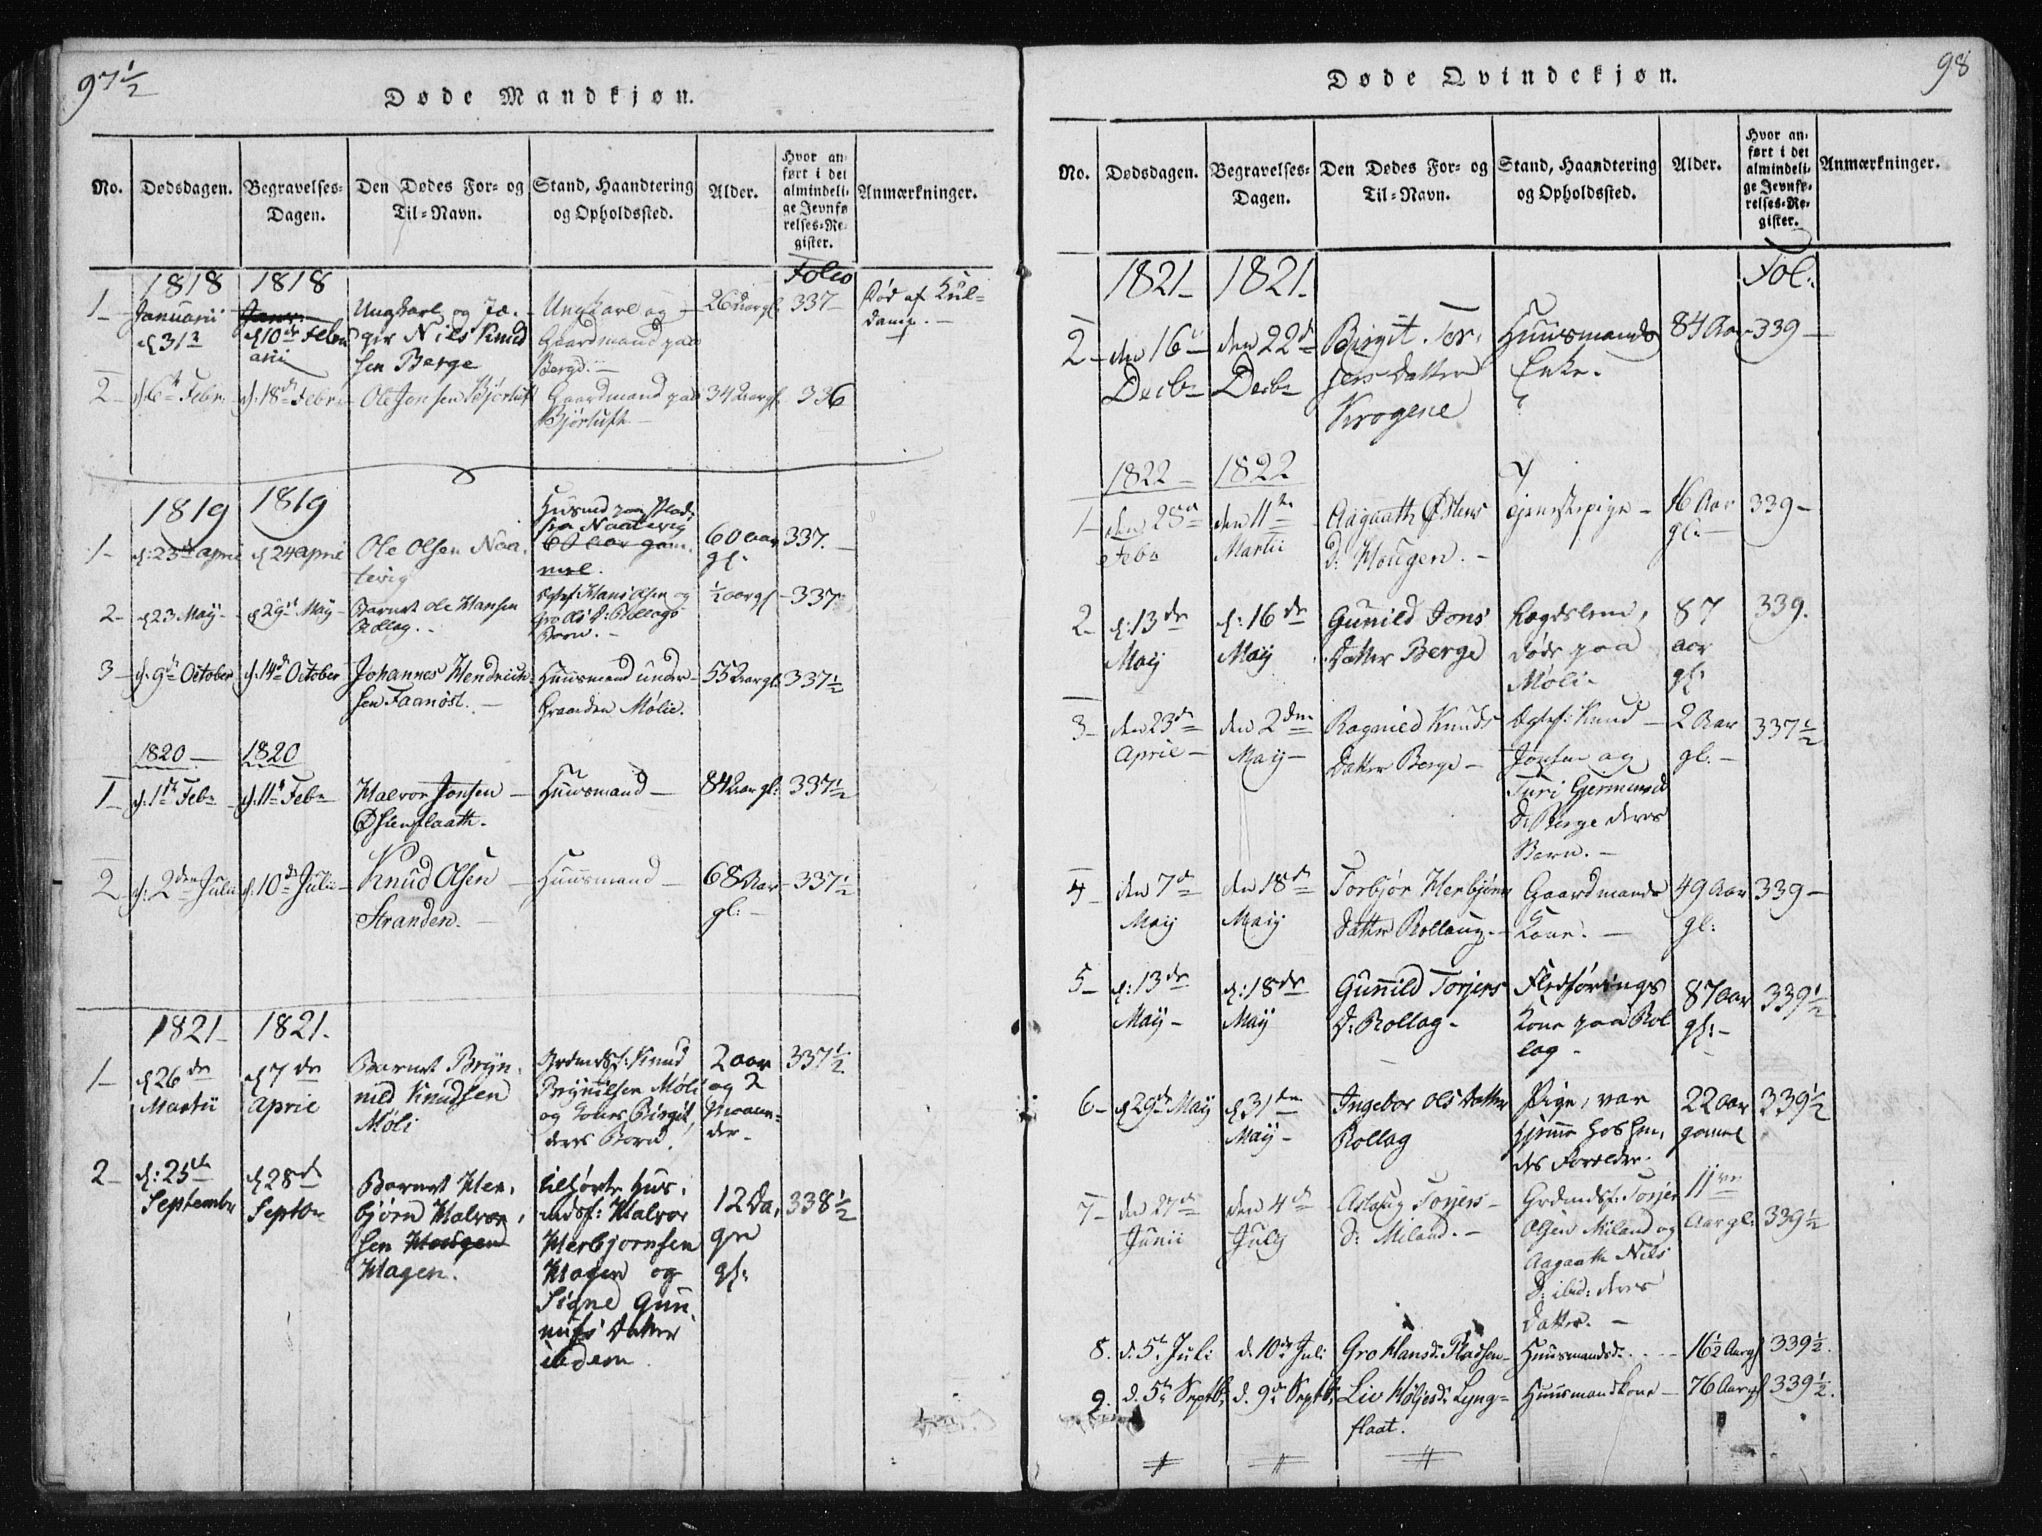 97½
Døde Mandkjøn.
No.
Dødsdagen.
Begravelses-
Dagen.
Den Dødes For- og
Til-Navn.
Stand, Haandtering
og Opholdssted.
Alder.
Hvor an-
ført i det
almindeli-
ge Jevnfø-
relses-Re-
gister.
Anmærkninger.
1818 1818 Folio
1 Januarii
d 31te
Janr.
d 10de Febru
arii
Ungkarl og Jæ-
ger Niels Knud
sen Berge
Ungkarl og
Gaardmand paa
Berge.
26 Aar gl. 337
Død af Kul-
damp.
2 d. 6te Febr. d. 18de Febr. Ole Jensen Bjørtuft
Gaardmand paa
Bjørtuft
34 Aar gl. 336
1819 1819
1 d: 23de April d 24 April
Ole Olsen Naa-
tevig
Husmd paa Plad-
sen Naatevig
60 aar gam-
mel.
60 aar
gl.
337.
2 d 23 May d 29de May
Barnet Ole Hansen
Rollag.
Hans Olsen og
Gro Olsd: Rollags
Barn.
½ aar gl 337
3 d. 9de October d. 14de October
Johannes Hendrich-
sen Faanøst.
Huusmand under
Graanden Mølie.
55 Aar gl. 337½
1820 1820
1 d. 1ste Febr d. 11te Febr
Halvor Jonsen
Østenflaath.
Huusmand 84 Aar gl: 337½
2 d. 2den Julii d. 10de Julii
Knud Olsen
Stranden.
Huusmand
68 Aar
gl:
337½
1821 1821.
1 d 26de
Martii
d 7de
April
Barnet Bryn-
nild Knudsen
Møli
Grdmdsf: Knud
Brynnilsen Møli
og Kones Birgit,
deres Barn.
2 aar
og 2
Maane-
der
337½
2 d: 25de
September
d 28de
Septbr
Barnet Her-
bjørn Halvor-
sen Hougen
Hagen.
tilhørte Hus-
mdsf: Halvor
Herbjørnsen
Hagen og
Signe Gun-
nufs Datter
ibdem.
12 Da-
ge
gl:
338½
98
Døde Qvindekjøn.
No.
Dødsdagen.
Begravelses-
Dagen.
Den Dødes For- og
Til-Navn.
Stand, Haandtering
og Opholdssted.
Alder.
Hvor an-
ført i det
almindeli-
ge Jevnfø-
relses-Re-
gister.
Anmærkninger.
1821 1821. Fol:
2 den 16de
Decbr
den 22de
Decbr
Birgit Tor-
jers Datter
Krogene
Huusmands
Enke.
84 Aar 339
1822 1822
1 den 28de
Febr
den 11te
Martii
Aagaath Østens
D: Hougen.
Tjenestepige
16 Aar
gl.
339
2 d: 13de
May
d: 16de
May
Gunild Jons
Datter Berge
Lægdslem,
døde paa
Møli
87
aar
gl:
339.
3 den 23de
April
den 2den
May
Ragnild Knuds
Datter Berge
Knud
Jonsen og
Turi Gjermunds
D. Berge deres
Barn.
2 Aar
gl.
337½
4 den 7de
May
den 18de
May
Torbjør Herbjørns
Datter Rollaug.
Gaardmands
Kone.
49 Aar
gl:
339
5 d: 13de
May
d: 18de
May
Gunnild Torjers
D: Rollag
Fledførings
Kone paa Rol
lag
87 aar
gl:
339½
6 d 29de May
d 31te
May
Ingebor Ols Datter
Rollag
Pige, var
hjemme hos hen-
des Forelder.
22 aar
gamel
339½
7 den 27de
Junii
den 4de
July
Aslaug Torjers
D: Miland.
Grdmdsf: Torjer
Olsen Miland og
Aagaath Nils
D: ibid: deres
Datter.
11ve
Aar gl.
339½
8. d. 5te Juli d. 10de Juli Gro Hansd: Pladsen Huusmandsd. 16½ Aar gl 339½.
9. d. 5te Septbr. d. 9de Septbr. Liv Høljesd: Lyng-
flaat.
Huusmandkone 76 Aar gl 339½.